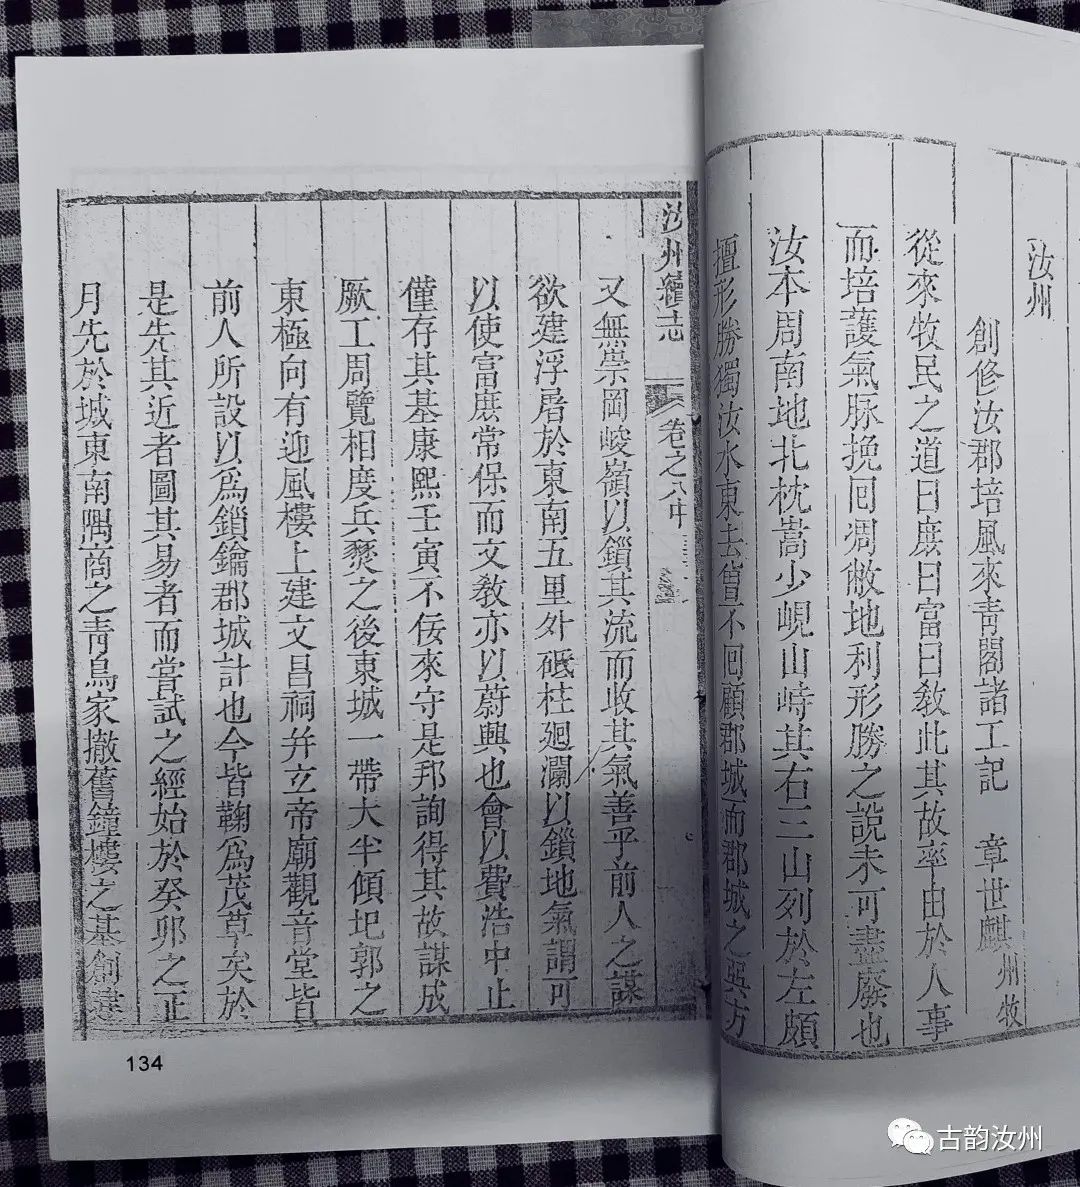 汝州
創修汝郡培風來青閣諸工記 章世麒 州牧
從來牧民之道曰庶曰富曰教此其故率由於人事
而培護氣脉挽回凋敝地利形勝之說未可盡廢也
汝本周南地北枕嵩少峴山峙其右三山列於左頗
擅形勝獨汝水東去曾不回顧郡城而郡城之巽方
汝州續志 卷之八中
又無崇岡峻嶺以鎖其流而收其氣善乎前人之謀
欲建浮屠於東南五里外砥柱廻瀾以鎖地氣謂可
以使富庶常保而文教亦以蔚興也會以費浩中止
僅存其基康熙壬寅不佞來守是邦詢得其故謀成
厥工周覽相度兵燹之後東城一帶大半傾圮郭之
東極向有迎風樓上建文昌祠并立帝廟觀音堂皆
前人所設以為鎖鑰郡城計也今皆鞠為茂草矣於
是先其近者圖其易者而嘗試之經始於癸卯之正
月先於城東南隅商之青鳥家撤舊鐘樓之基創建
134
古韵汝州